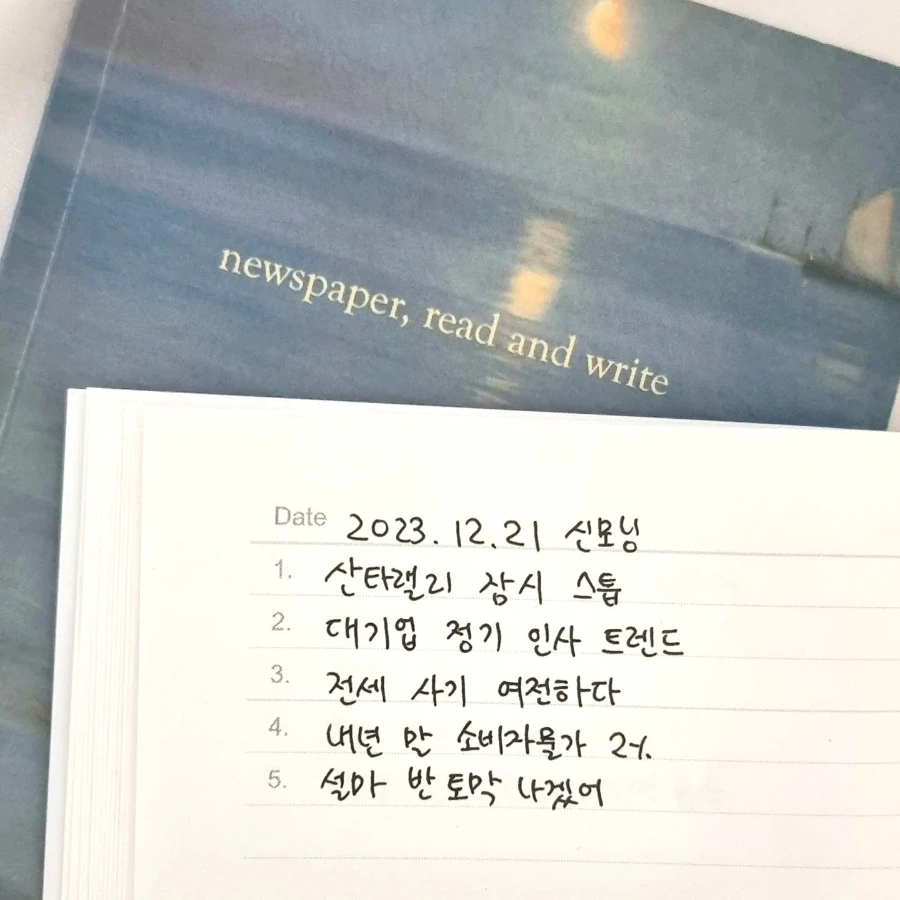 newspaper, read and write
Date 2023.12.21 신모닝
1. 산타랠리 잠시 스톱
2. 대기업 정기 인사 트렌드
3. 전세 사기 여전하다
4. 내년 말 소비자물가 2%
5. 설마 반토막 나겠어